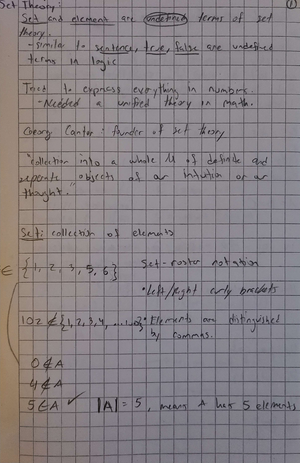 Set Theory: ①
Set and element are undefined terms of set
theory.
- similar to sentence, true, false are undefined
terms in logic
Tried to express everything in numbers.
- Needed a unified theory in math.
Georg Cantor: founder of set theory
"collection into a whole M of definite and
seperate objects of our intuition or our
thought."
Set: collection of elements
∈ {1, 2, 3, 5, 6} Set-roster notation
• Left/Right curly brackets
102 ∉ {1, 2, 3, 4, ... • Elements are distinguished
by commas.
0 ∉ A
4 ∉ A
5 ∈ A ✓ |A| = 5, means A has 5 elements